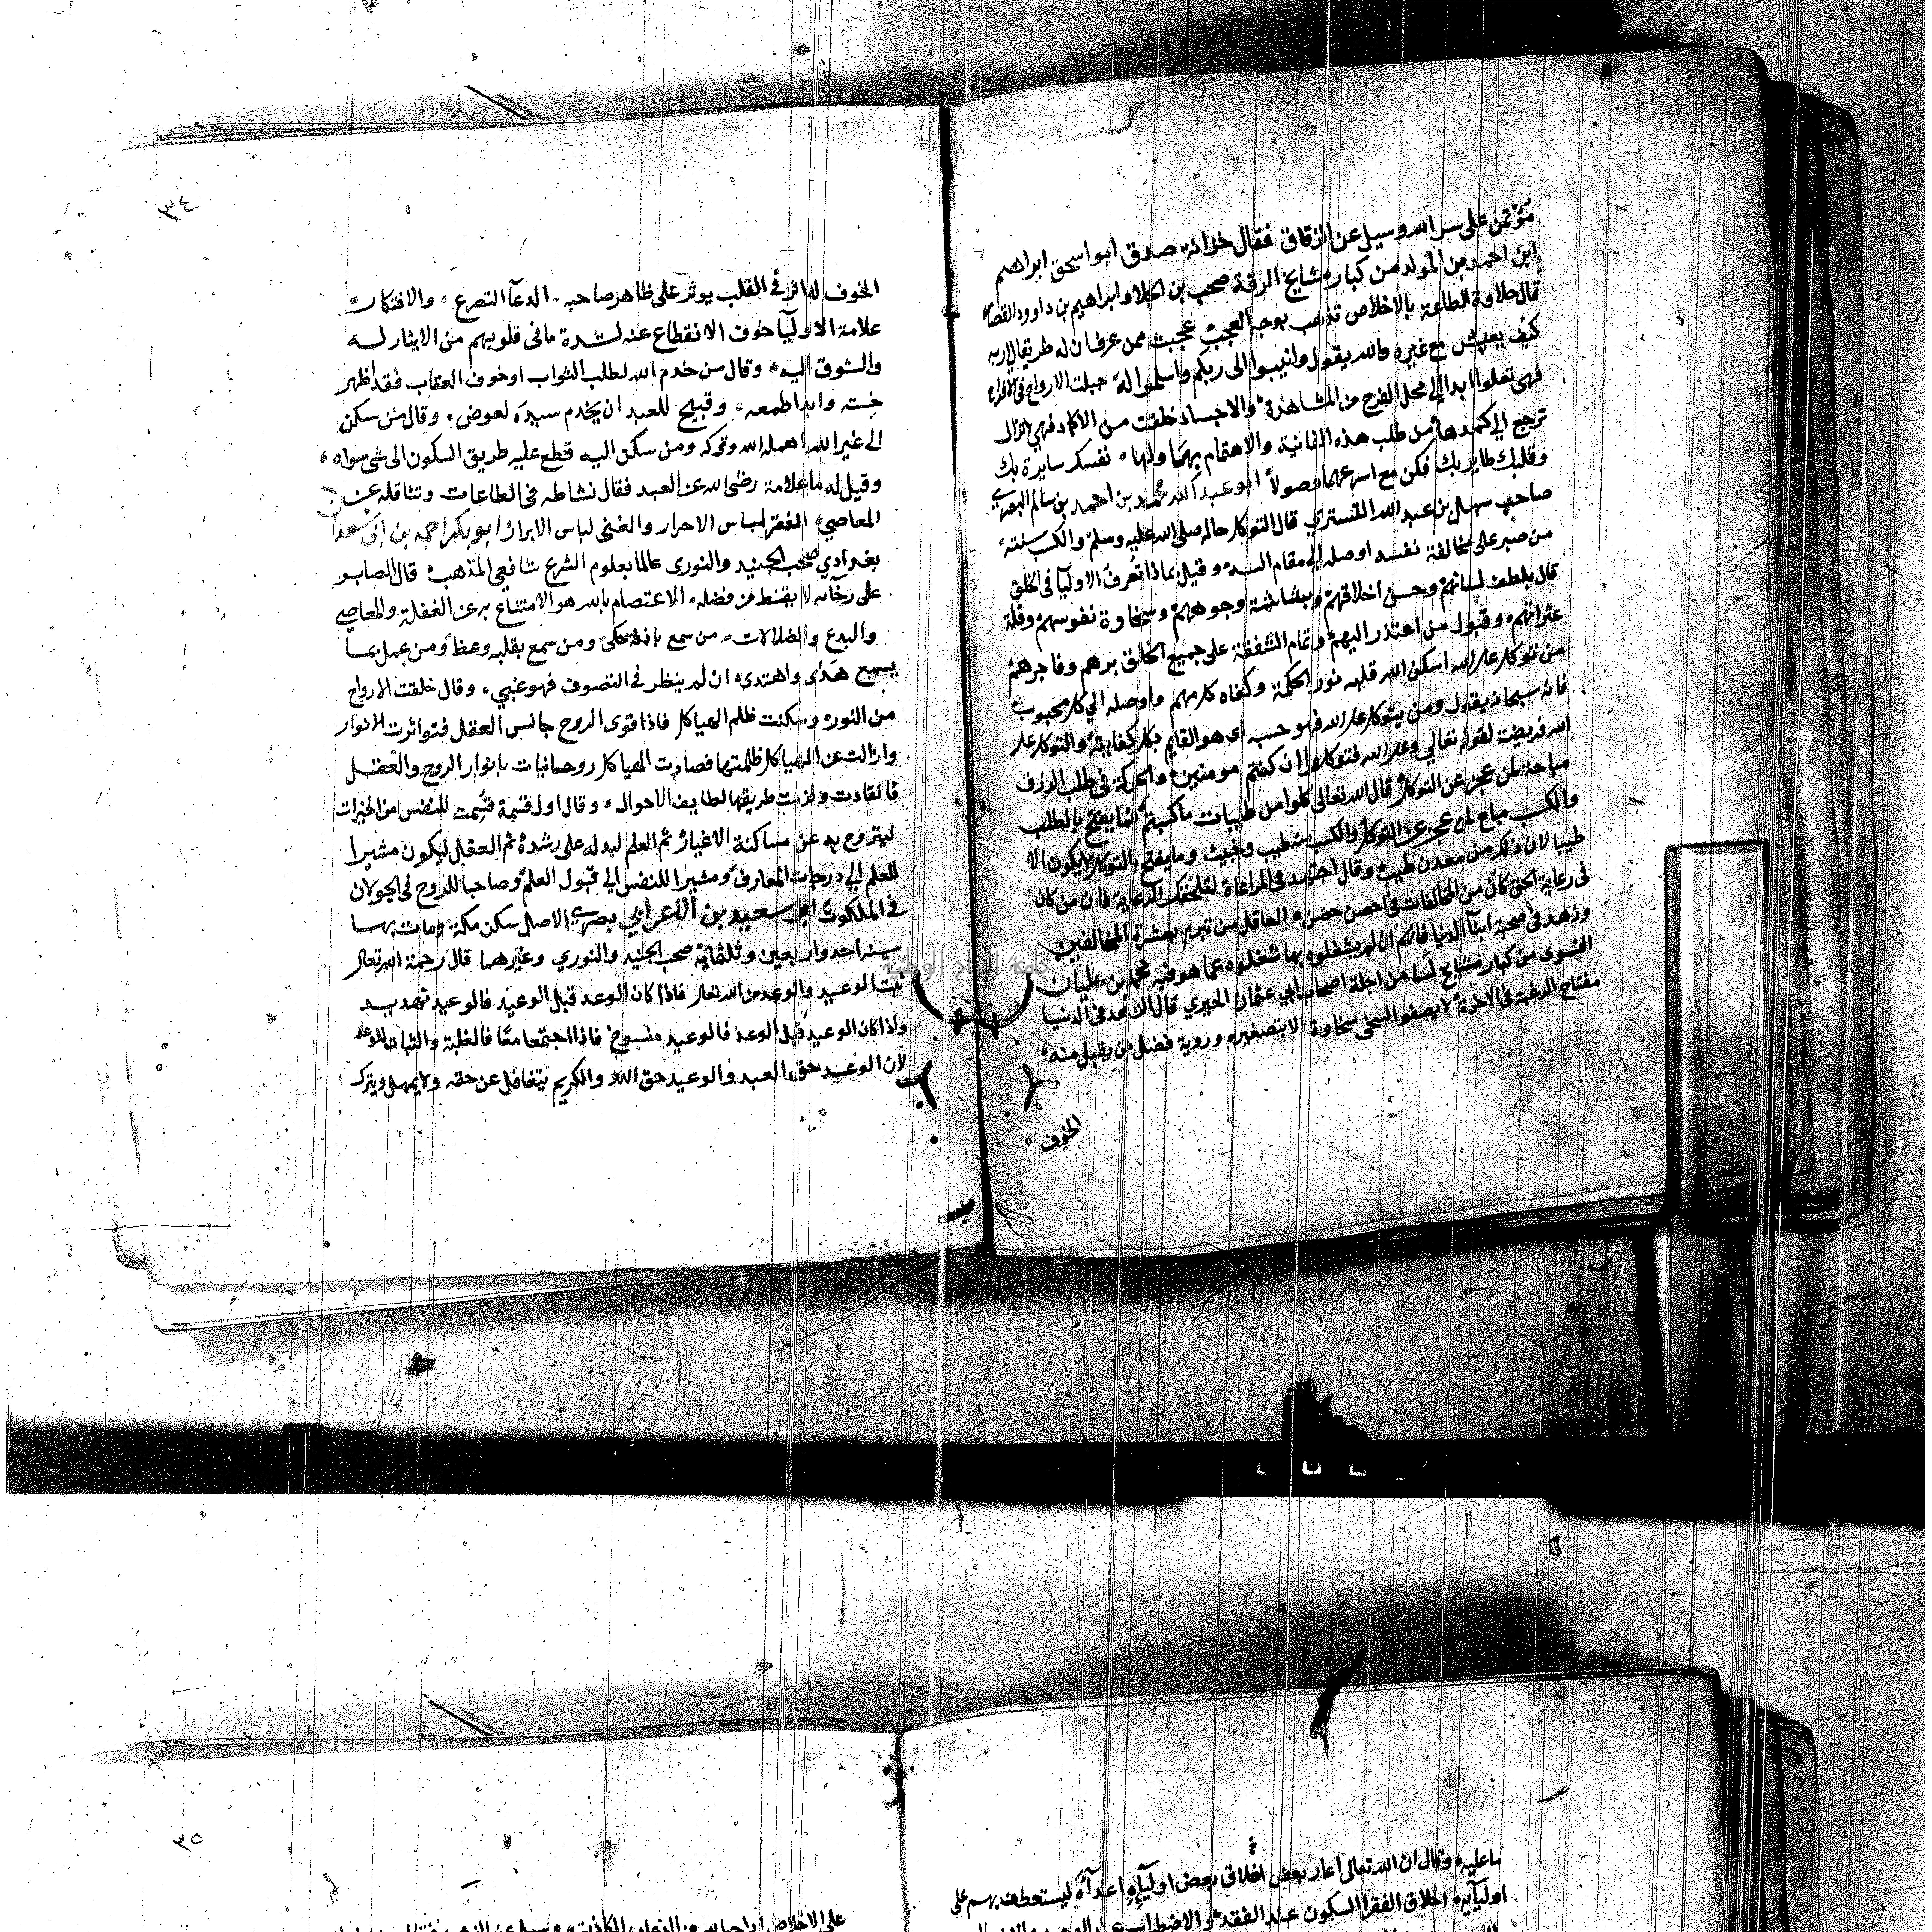 مؤتمن على سر الله وسيل عن الزقاق فقال خزانة صدق ابو اسحق ابراهيم
ابن احمد بن المولد من كبار مشايخ الرقة صحب بن الجلا وابراهيم بن داوود القصار
قال حلاوة الطاعة بالاخلاص تذهب بوحشة العجب عجبت ممن عرف ان له طريقا الى ربه
كيف يعيش مع غيره والله يقول وانيبوا الى ربكم واسلموا له جبلت الارواح في الافراح
فهي تعلوا ابدا الى محل الفرح من المشاهدة والاجساد خلقت من الاكماد فهي لا تزال
ترجع الى كمدها من طلب هذه الفانية والاهتمام بها ولها نفسك سايرة بك
وقلبك طاير بك فكن مع اسرعهما وصولا ابو عبد الله محمد بن احمد بن سالم البصري
صاحب سهل بن عبد الله التستري قال التوكل حاله صلى الله عليه وسلم والكسب سنته
من صبر على مخالفة نفسه اوصله الى مقام انسه وقيل بماذا تعرف الاوليا في الخلق
قال بلطف لسانهم وحسن اخلاقهم وبشاشة وجوههم وسخاوة نفوسهم وقلة
وقبول من اعتذر اليهم وتمام الشفقة على جميع الخلق برهم وفاجرهم
من توكل على الله اسكن الله قلبه نور الحكمة وكفاه كل مهم واوصله الى كل محبوب
فانه سبحانه يقول ومن يتوكل على الله فهو حسبه اي هو القايم بكل كفايته والتوكل على
الله فريضة لقوله تعالى وعلى الله فتوكلوا ان كنتم مومنين والحركة في طلب الرزق
مباحة لمن عجز عن التوكل قال الله تعالى كلوا من طيبات ما كسبتم بالطلب
والكسب مباح لمن عجز عن التوكل والكسب منه طيب وخبيث وما يفتح التوكل لا يكون الا
طيبا لان ذلك من معدن طيب وقال اجتهد في المراعاة الرعاية فان من كان
في رعاية الحق كان من المخالفات في احصن حصن العاقل من تبرم بعشرة المخالفين
وزهد في صحبة ابنا الدنيا فانهم ان لم يشغلوه بها شغلوه عما هو فيه محمد بن عليان
النسوى من كبار مشايخ نسا من اجلة اصحاب ابي عثمان الحيري قال الزهد في الدنيا
مفتاح الرغبة في الاخرة لا يصفو السخى سخاوة الا بتصغيره وروية فضل من يقبل منه
الخوف
٣٤
الخوف له اثر في القلب يوثر على ظاهر صاحبه الدعآ التضرع والافتكار
علامة الاوليآ خوف الانقطاع عنه لشدة ما في قلوبهم من الايثار له
والشوق اليه وقال من خدم الله لطلب الثواب او خوف العقاب فقد اظهر
خسته وابدا طمعه وقبيح للعبد ان يخدم سيده لعوض وقال من سكن
الى غير الله اهمله الله وتركه ومن سكن اليه قطع عليه طريق السكون الى شي سواه
وقيل له ما علامة رضى الله عن العبد فقال نشاطه في الطاعات وتثاقله عن
المعاصي الفقر لباس الاحرار والغنى لباس الابرار ابو بكر احمد بن ابي سعدان
بغدادي صحب الجنيد والنورى عالما بعلوم الشرع شافعي المذهب قال الصابر
على رجآيه لا يقنط من فضله الاعتصام بالله هو الامتناع به عن الغفلة والمعاصي
والبدع والضلالات من سمع باذنه حكى ومن سمع بقلبه وعظ ومن عمل بما
يسمع هدى واهتدى ان لم ينظر في التصوف فهو غبي وقال خلقت الارواح
من النور وسكنت ظلم الهياكل فاذا قوى الروح جانس العقل فتواترت الانوار
وازالت عن الهياكل ظلمتها فصارت الهياكل روحانيات بانوار الروح والعقل
فانقادت ولزمت طريقها لطايف الاحوال وقال اول قسمة قسمت للنفس من الخيرات
ليتروح به عن مساكنة الاغيار ثم العلم ليدله على رشده ثم العقل ليكون مشيرا
للعلم الى درجات المعارف ومشيرا للنفس الى قبول العلم وصاحبا للروح في الجولان
في الملكوت ابو سعيد بن الاعرابي بصري الاصل سكن مكة ومات بها
سنه احد واربعين وثلثماية صحب الجنيد والنوري وغيرهما قال رحمة الله تعالى
ثبت الوعيد والوعد من الله تعالى فاذا كان الوعد قبل الوعيد فالوعيد تهديد
واذا كان الوعيد قبل الوعد فالوعيد منسوخ فاذا اجتمعا معا فالغلبة والثبات للوعد
لان الوعد حق العبد والوعيد حق الله والكريم يتغافل عن حقه ولا يهمل ويترك
ما عليه وقال ان الله تعالى اعار بعض اخلاق بعض اوليآيه اعدآه ليستعطف بهم على
اوليآيه اخلاق الفقرا السكون عند الفقد والاضطراب
٣٥